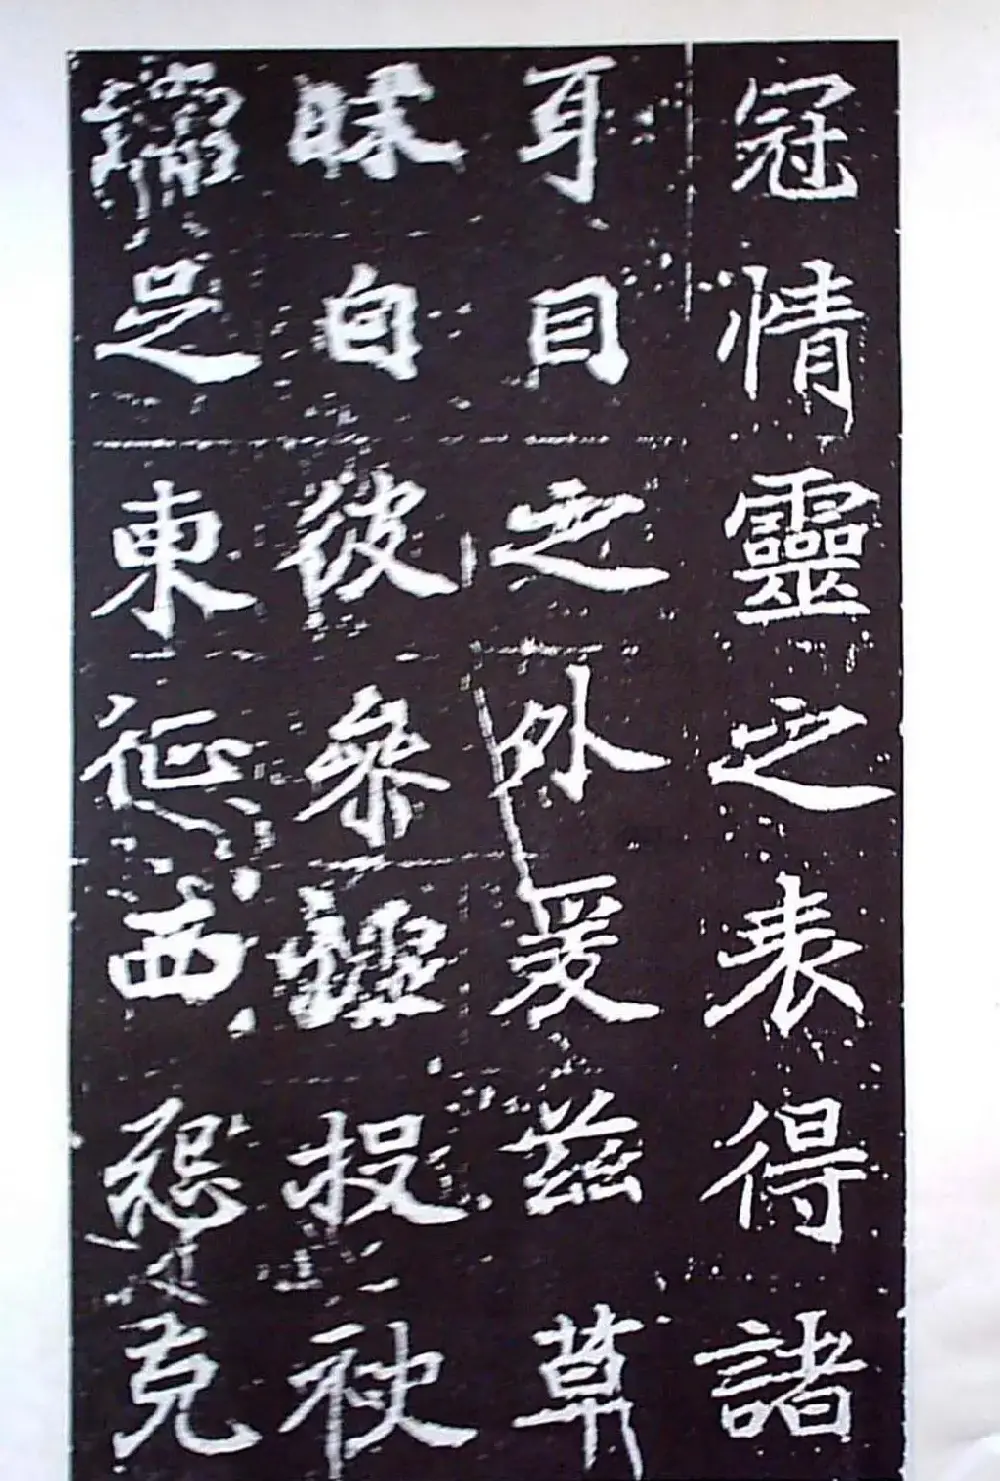 冠情靈之表得諸
耳目之外爰茲草
昧白彼參墟投袂
足東征西怨克